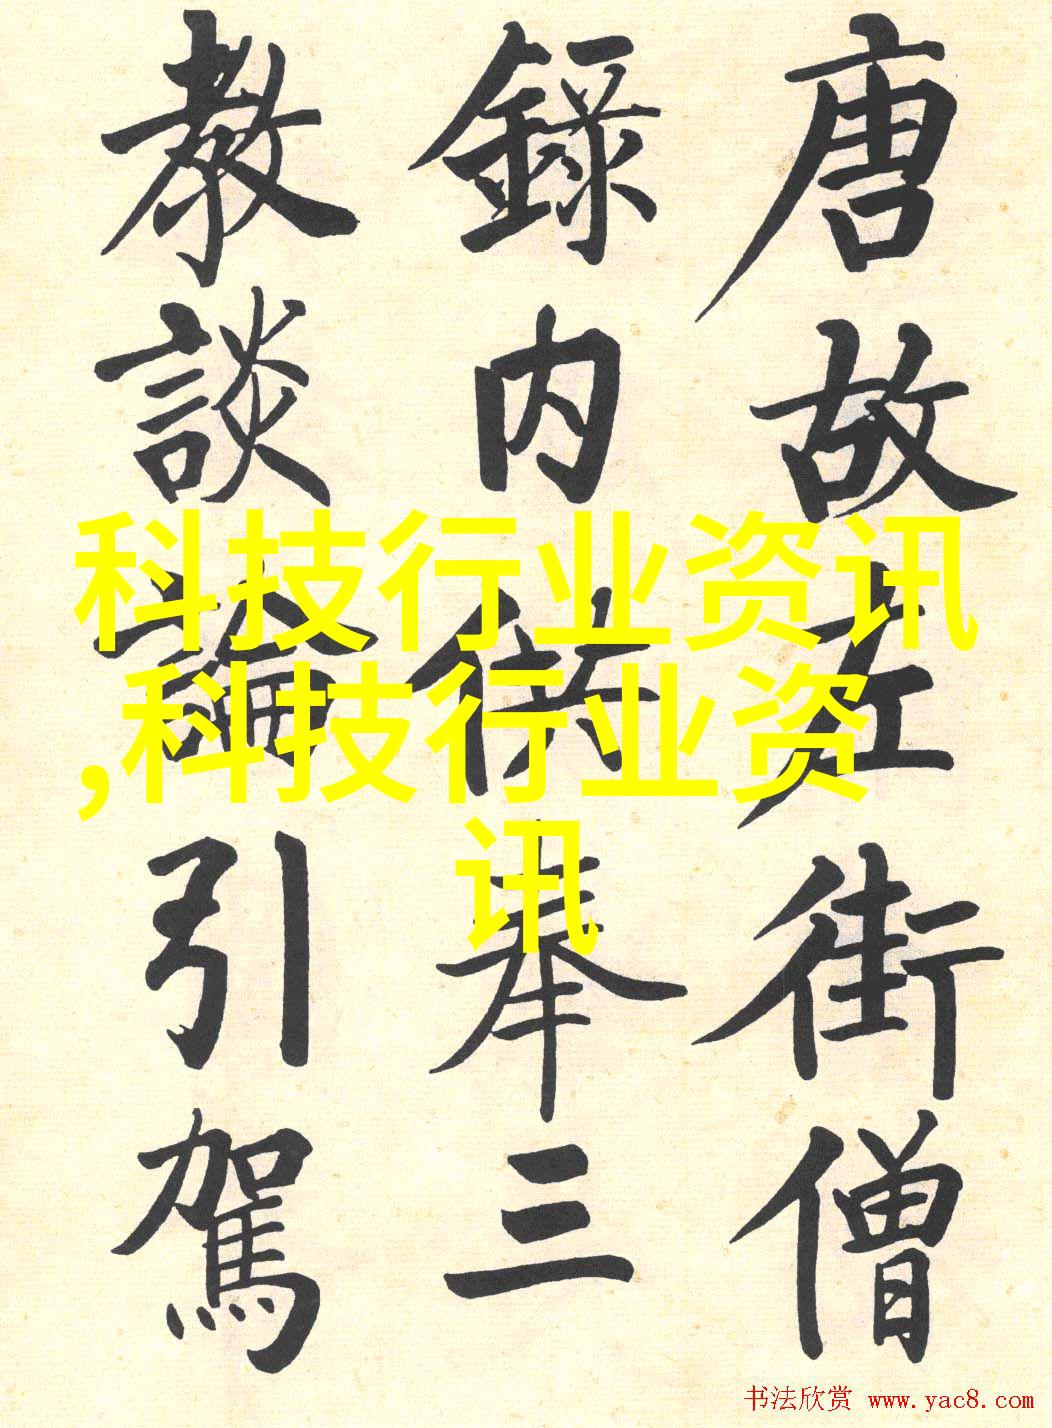 唐故左街僧
錄内供奉三
教談論引駕
科技行业资讯
,科技行业资
讯
书法欣赏 www.yac8.com